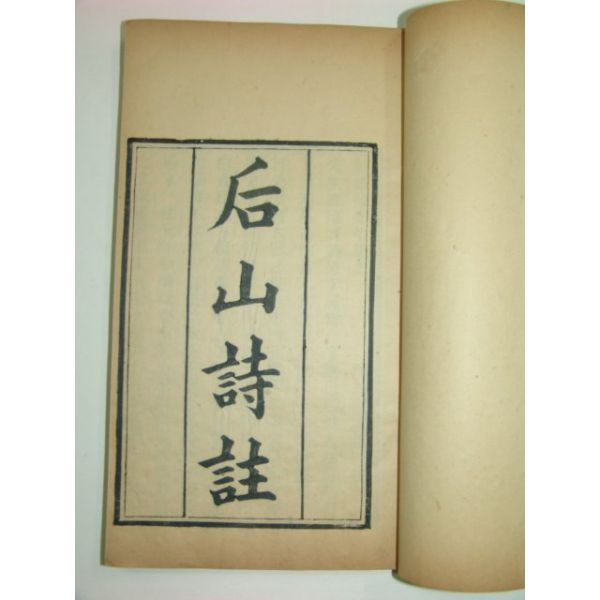 后山詩註